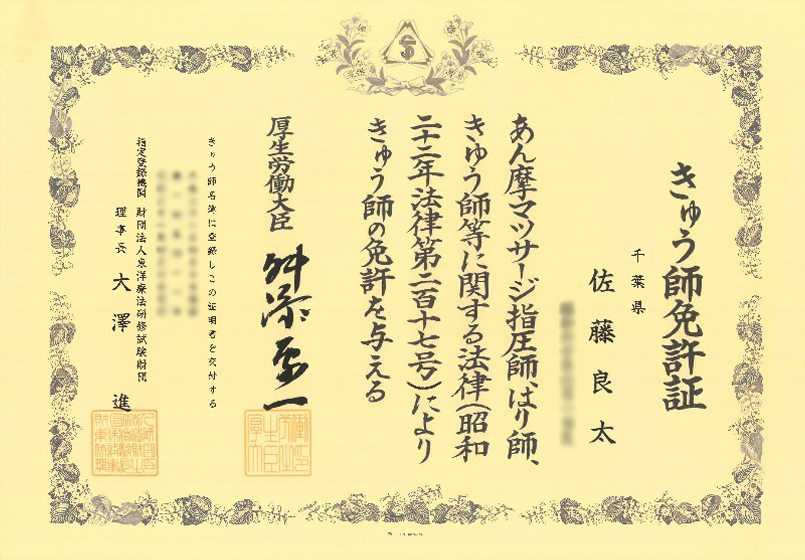 きゅう師免許証
千葉県
佐藤良太
あん摩マツサージ指圧師、はり師、
きゆう師等に関する法律(昭和
二十二年法律第二百十七号)により
きゅう師の免許を与える
厚生労働大臣 舛添要一
きゅう師名簿に登録しこの証明書を交付する
指定登録機関 財団法人東洋療法研修試験財団
理事長 大澤進